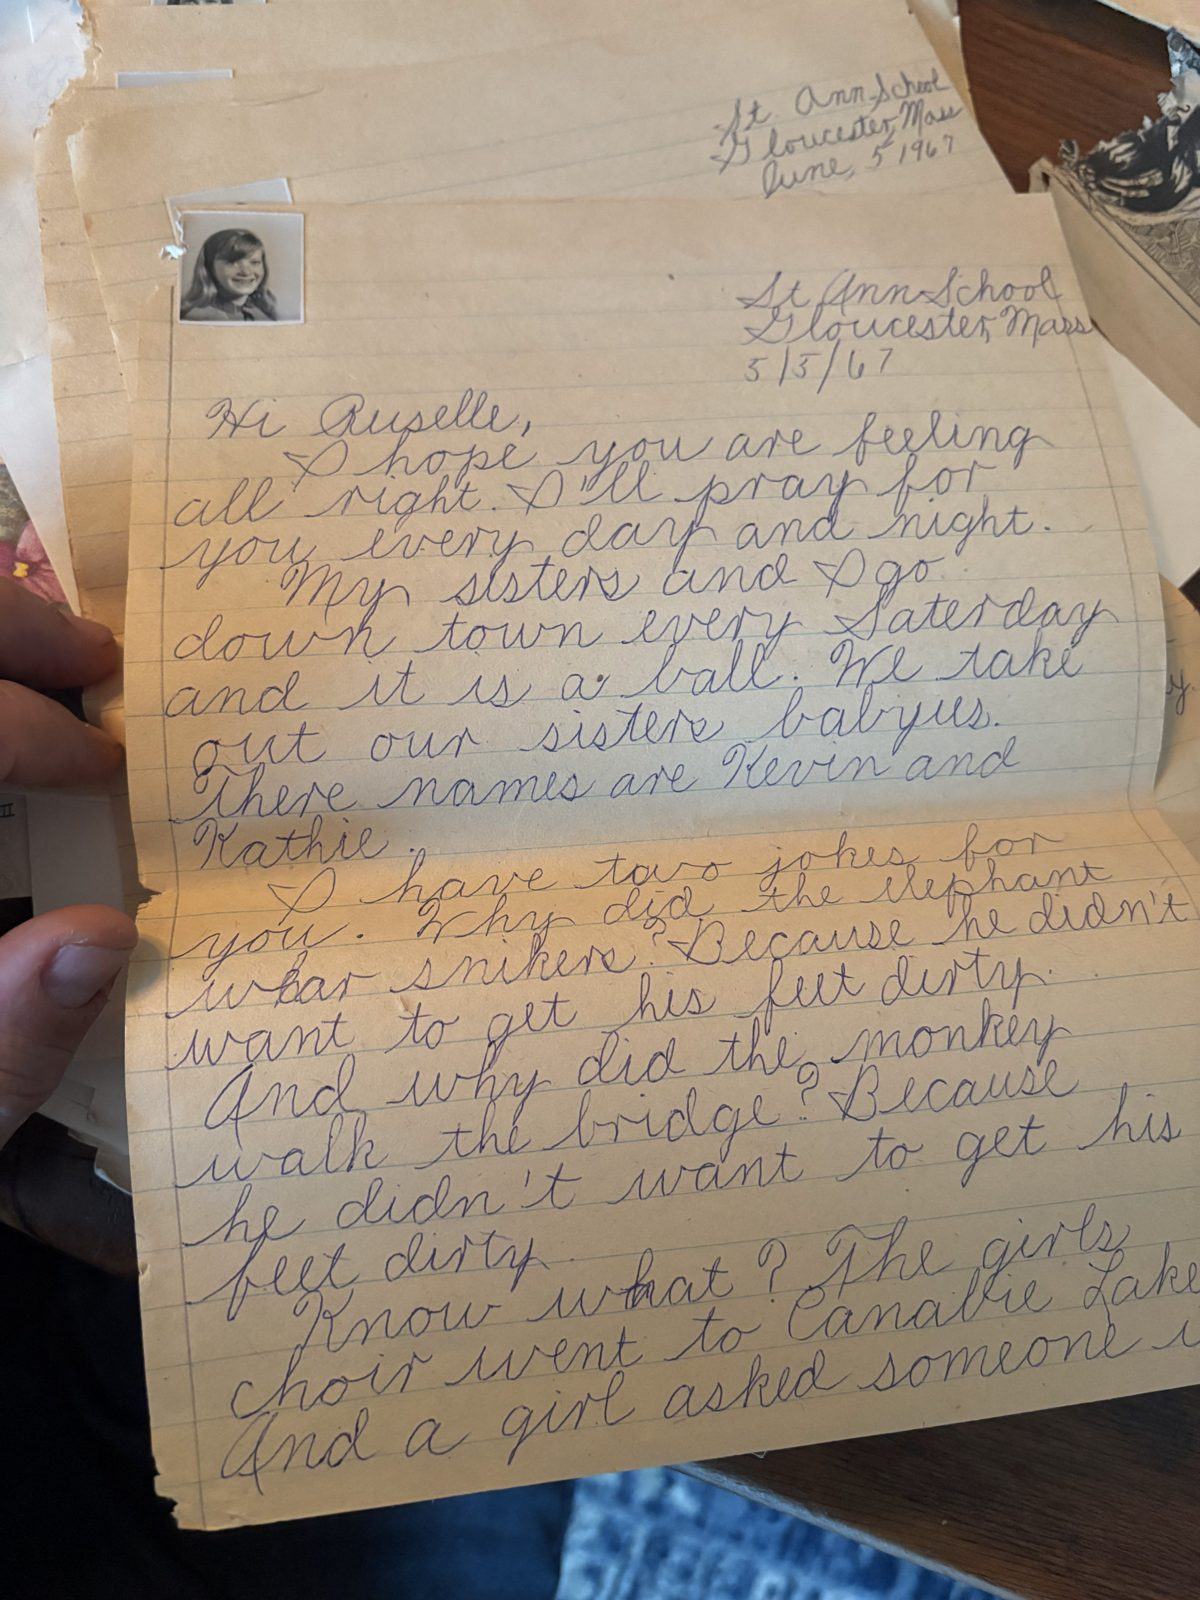 St Ann School
Gloucester, Mass
June, 5 1967
St Ann School
Gloucester, Mass
5/5/67
Hi Ruselle,
I hope you are feeling
all right. I'll pray for
you every day and night.
My sisters and I go
down town every Saterday
and it is a ball. We take
out our sisters babyus.
There names are Kevin and
Kathie.
I have two jokes for
you. Why did the elephant
whar snikers? Because he didn't
want to get his feet dirty.
And why did the monkey
walk the bridge? Because
he didn't want to get his
feet dirty.
Know what? The girls
choir went to Canabie Lake
And a girl asked someone
y.
II